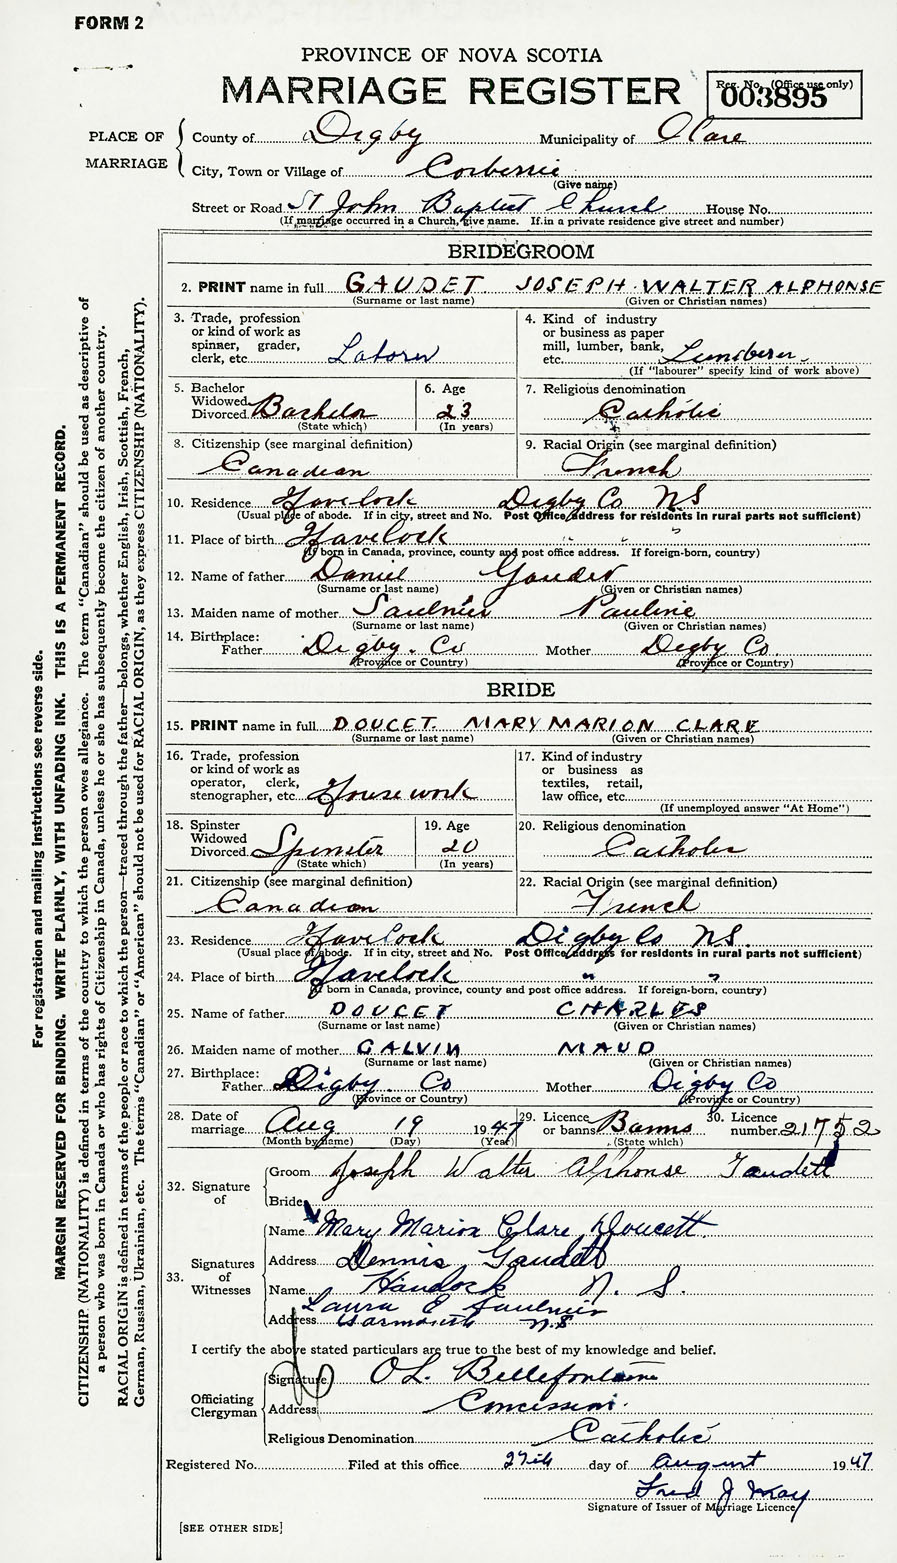 FORM 2
PROVINCE OF NOVA SCOTIA
MARRIAGE REGISTER
Reg. No. (Office use only)
003895
PLACE OF MARRIAGE
County of Digby Municipality of Clare
City, Town or Village of Corberrie
(Give name)
Street or Road St John Baptist Church House No.
(If marriage occurred in a Church, give name. If in a private residence give street and number)
BRIDEGROOM
2. PRINT name in full GAUDET JOSEPH WALTER ALPHONSE
(Surname or last name) (Given or Christian names)
3. Trade, profession or kind of work as spinner, grader, clerk, etc. Laborer
4. Kind of industry or business as paper mill, lumber, bank, etc. Lumberer
(If "labourer" specify kind of work above)
5. Bachelor Widowed Divorced Bachelor
(State which)
6. Age 23
(In years)
7. Religious denomination Catholic
8. Citizenship (see marginal definition) Canadian
9. Racial Origin (see marginal definition) French
10. Residence Havelock Digby Co NS
(Usual place of abode. If in city, street and No. Post Office address for residents in rural parts not sufficient)
11. Place of birth Havelock " " "
(If born in Canada, province, county and post office address. If foreign-born, country)
12. Name of father Daniel Gaudet
(Surname or last name) (Given or Christian names)
13. Maiden name of mother Saulnier Pauline
(Surname or last name) (Given or Christian names)
14. Birthplace: Father Digby. Co Mother Digby Co.
(Province or Country) (Province or Country)
BRIDE
15. PRINT name in full DOUCET. MARY MARION CLARE
(Surname or last name) (Given or Christian names)
16. Trade, profession or kind of work as operator, clerk, stenographer, etc. House work
17. Kind of industry or business as textiles, retail, law office, etc.
(If unemployed answer "At Home")
18. Spinster Widowed Divorced Spinster
(State which)
19. Age 20
(In years)
20. Religious denomination Catholic
21. Citizenship (see marginal definition) Canadian
22. Racial Origin (see marginal definition) French
23. Residence Havelock Digby Co NS.
(Usual place of abode. If in city, street and No. Post Office address for residents in rural parts not sufficient)
24. Place of birth Havelock " "
(If born in Canada, province, county and post office address. If foreign-born, country)
25. Name of father DOUCET CHARLES
(Surname or last name) (Given or Christian names)
26. Maiden name of mother GALVIN MAUD
(Surname or last name) (Given or Christian names)
27. Birthplace: Father Digby. Co Mother Digby Co
(Province or Country) (Province or Country)
28. Date of marriage Aug 19 1947
(Month by name) (Day) (Year)
29. Licence or banns Banns
(State which)
30. Licence number 21752
32. Signature of
Groom Joseph Walter Alphonse Gaudett
Bride
33. Signatures of Witnesses
Name Mary Marion Clare Doucett.
Address Dennis Gaudet
Name Havelock N. S.
Laura E Saulnier
Address Yarmouth N.S
I certify the above stated particulars are true to the best of my knowledge and belief.
Officiating Clergyman
Signature O L. Bellefontaine
Address Concession.
Religious Denomination Catholic
Registered No. Filed at this office 27th day of August 1947
Fred J May
Signature of Issuer of Marriage Licence
[SEE OTHER SIDE]
For registration and mailing instructions see reverse side.
MARGIN RESERVED FOR BINDING. WRITE PLAINLY, WITH UNFADING INK. THIS IS A PERMANENT RECORD.
CITIZENSHIP (NATIONALITY) is defined in terms of the country to which the person owes allegiance. The term "Canadian" should be used as descriptive of
a person who was born in Canada or who has rights of Citizenship in Canada, unless he or she has subsequently become the citizen of another country.
RACIAL ORIGIN is defined in terms of the people or race to which the person—traced through the father—belongs, whether English, Irish, Scottish, French,
German, Russian, Ukrainian, etc. The terms "Canadian" or "American" should not be used for RACIAL ORIGIN, as they express CITIZENSHIP (NATIONALITY).